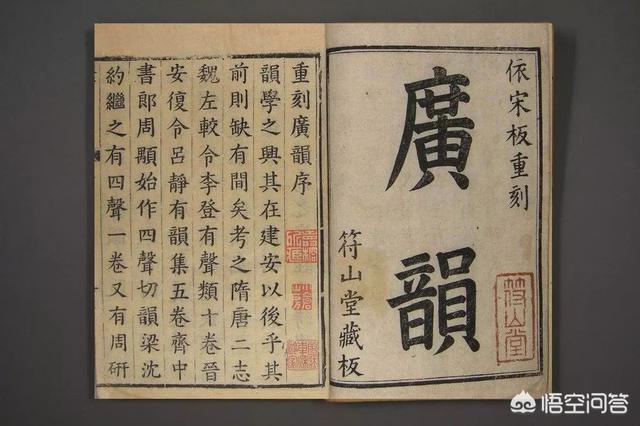 依宋板重刻
廣韻
符山堂藏板
符山堂
重刻廣韻序
韻學之興其在建安以後乎其
前則缺有間矣考之隋唐二志
魏左較令李登有聲類十卷晉
安復令呂靜有韻集五卷齊中
書郎周顒始作四聲切韻梁沈
約繼之有四聲一卷又有周硏
悟空问答